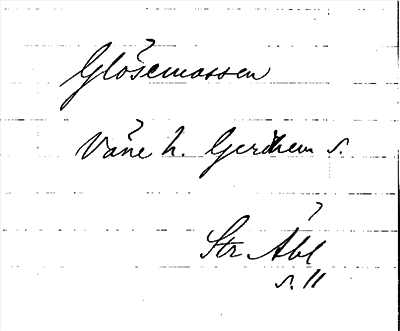 Glösemossen
Väne h. Gerdhem s.
Str Äbl
s. 11